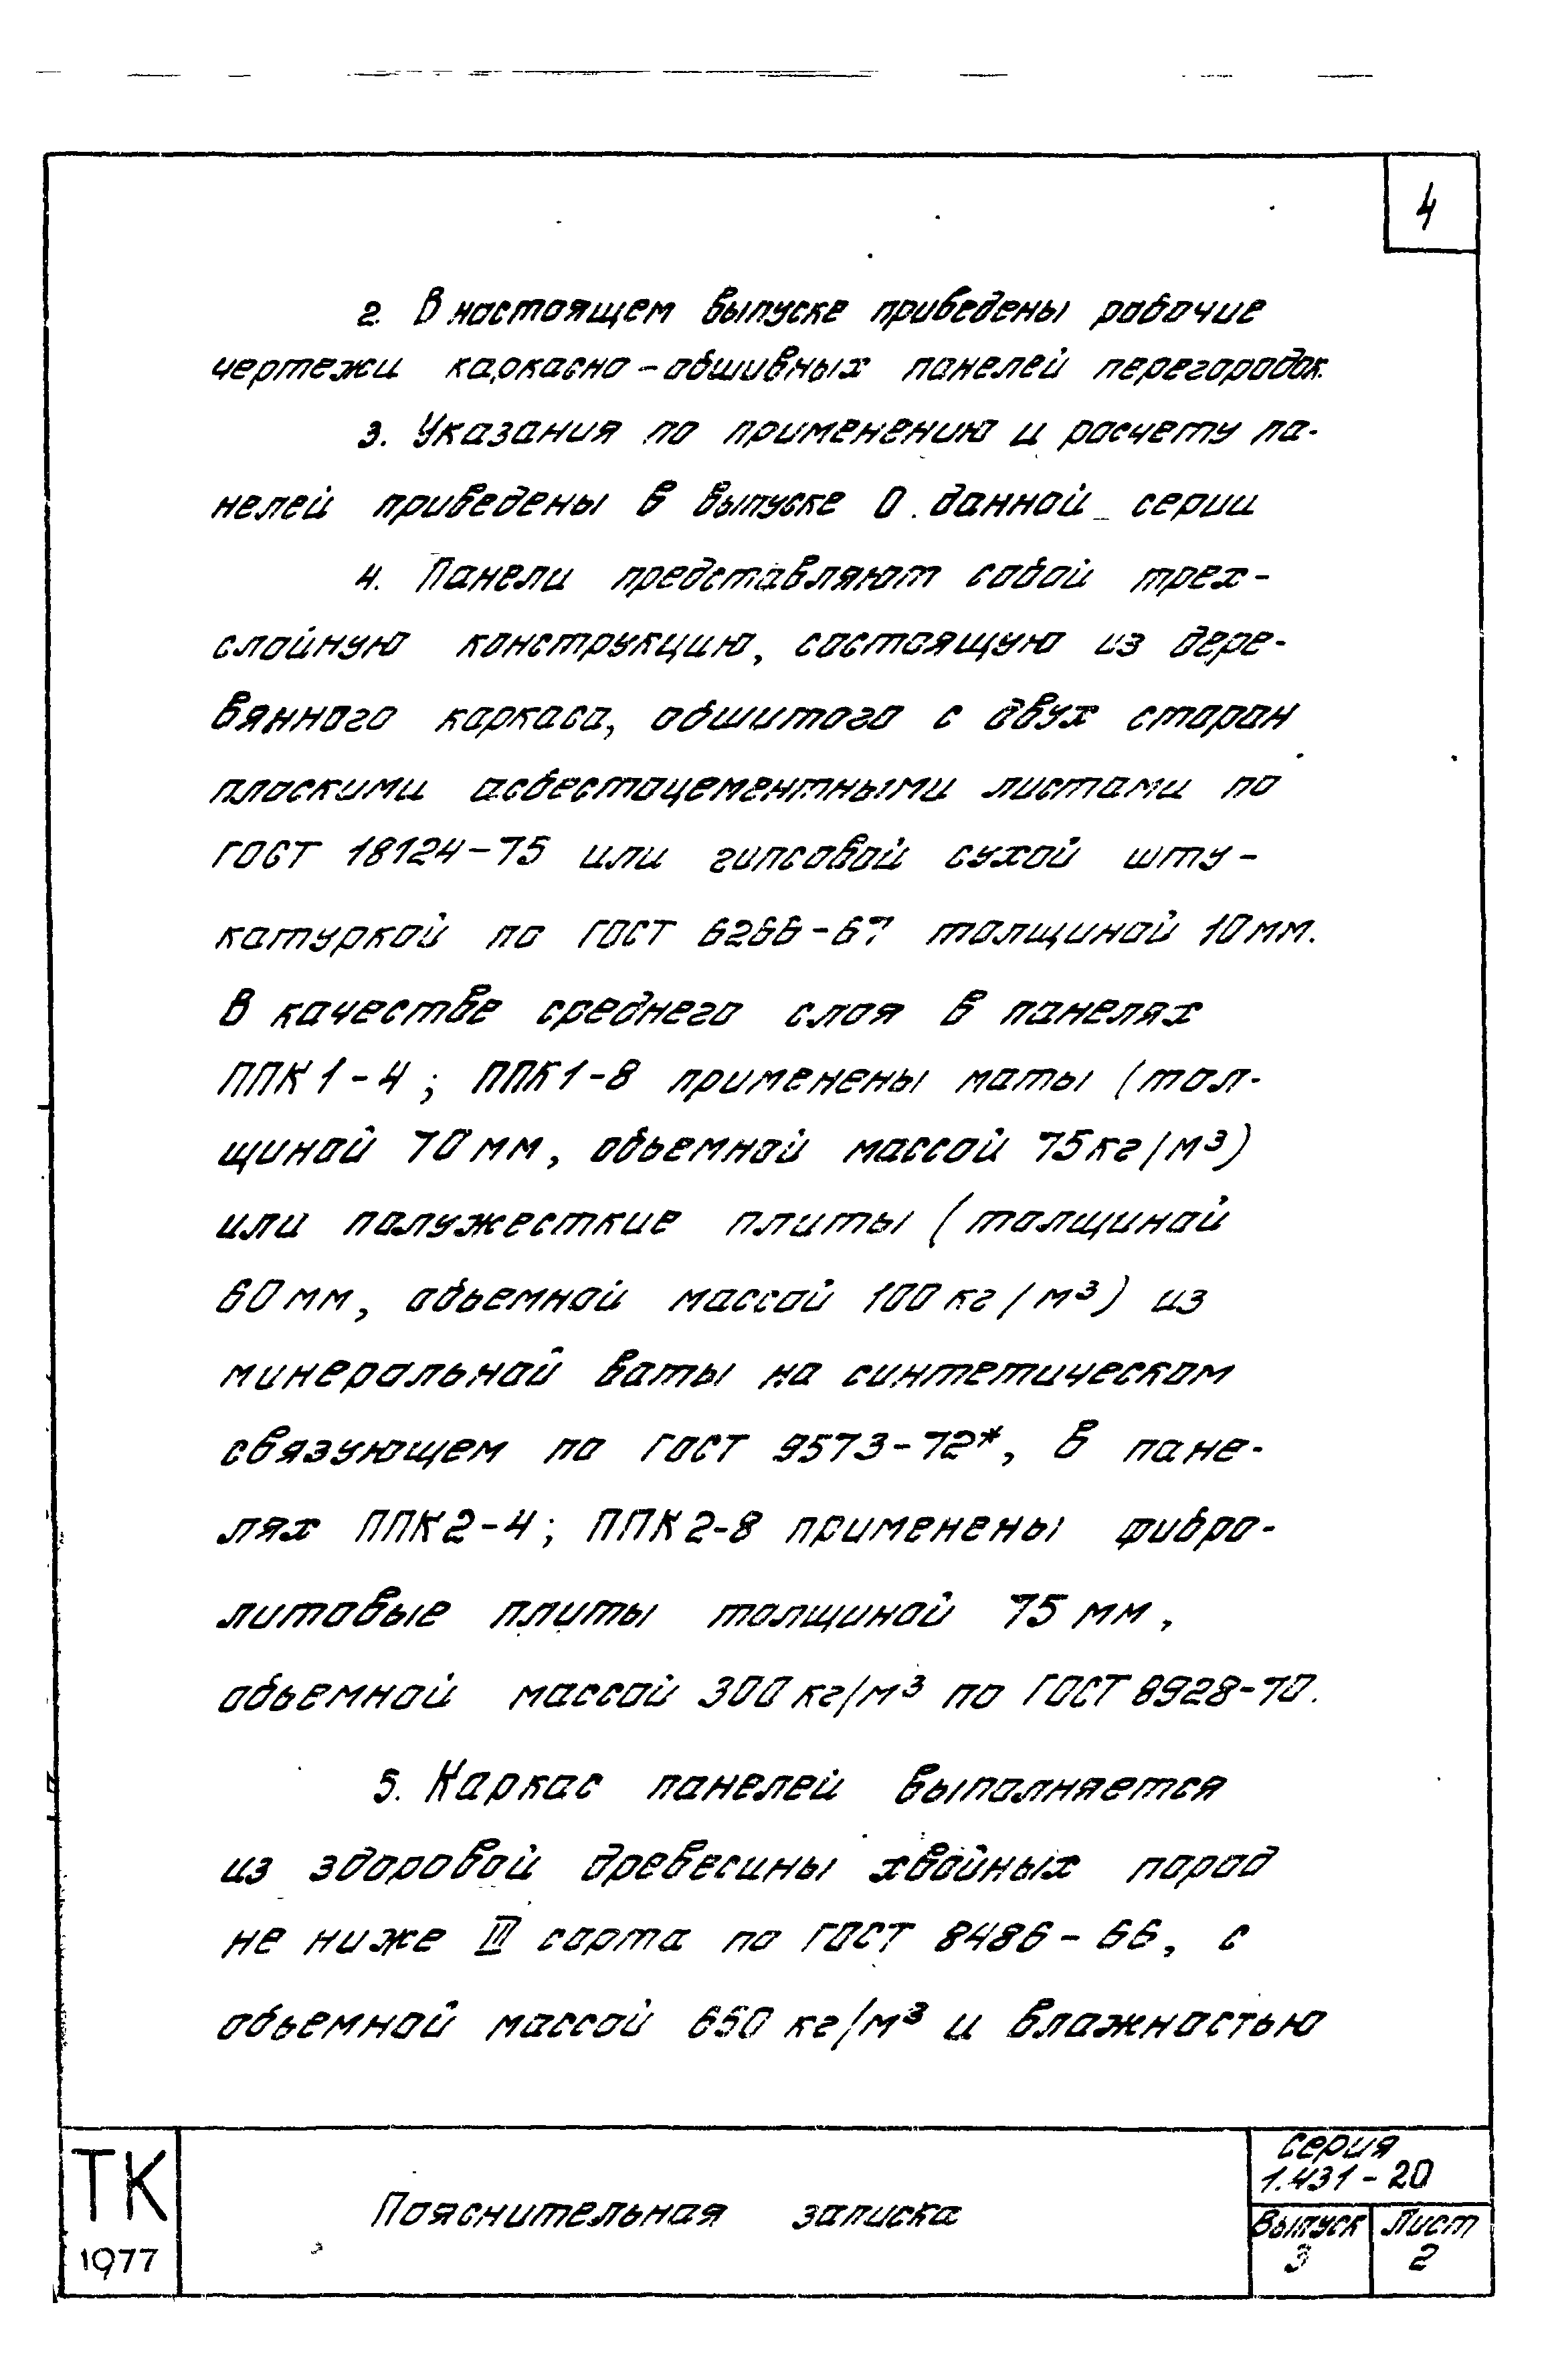 4
2. В настоящем выпуске приведены рабочие
чертежи каркасно-обшивных панелей перегородок.
3. Указания по применению и расчету па-
нелей приведены в выпуске 0 данной серии
4. Панели представляют собой трех-
слойную конструкцию, состоящую из дере-
вянного каркаса, обшитого с двух сторон
плоскими асбестоцементными листами по
ГОСТ 18124-75 или гипсовой сухой шту-
катуркой по ГОСТ 6266-67 толщиной 10 мм.
В качестве среднего слоя в панелях
ППК1-4; ППК1-8 применены маты (тол-
щиной 70 мм, обьемной массой 75 кг/м³)
или полужесткие плиты (толщиной
60 мм, обьемной массой 100 кг/м³) из
минеральной ваты на синтетическом
связующем по ГОСТ 9573-72*, в пане-
лях ППК2-4; ППК2-8 применены фибро-
литовые плиты толщиной 75 мм,
обьемной массой 300 кг/м³ по ГОСТ 8928-70.
5. Каркас панелей выполняется
из здоровой древесины хвойных пород
не ниже III сорта по ГОСТ 8486-66, с
обьемной массой 650 кг/м³ и влажностью
ТК
1977
Пояснительная записка
Серия
1.431-20
Выпуск
3
Лист
2